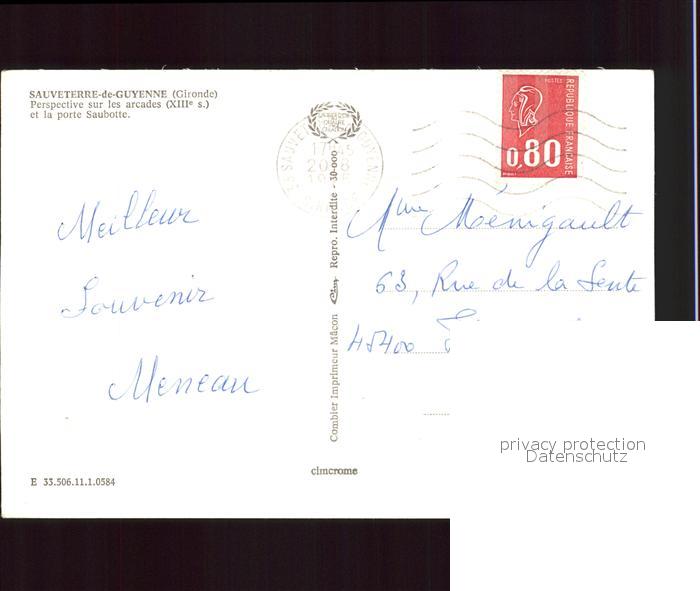 SAUVETERRE-de-GUYENNE (Gironde)
Perspective sur les arcades (XIIIe s.)
et la porte Saubotte.
POSTES
REPUBLIQUE FRANÇAISE
0,80
17H45
Meilleur
Souvenir
Meneau
Mme Ménigault
63, Rue de la Sente
45400
Combier Imprimeur Mâcon Cim Repro. Interdite - 30-000
cimcrome
E 33.506.11.1.0584
privacy protection
Datenschutz